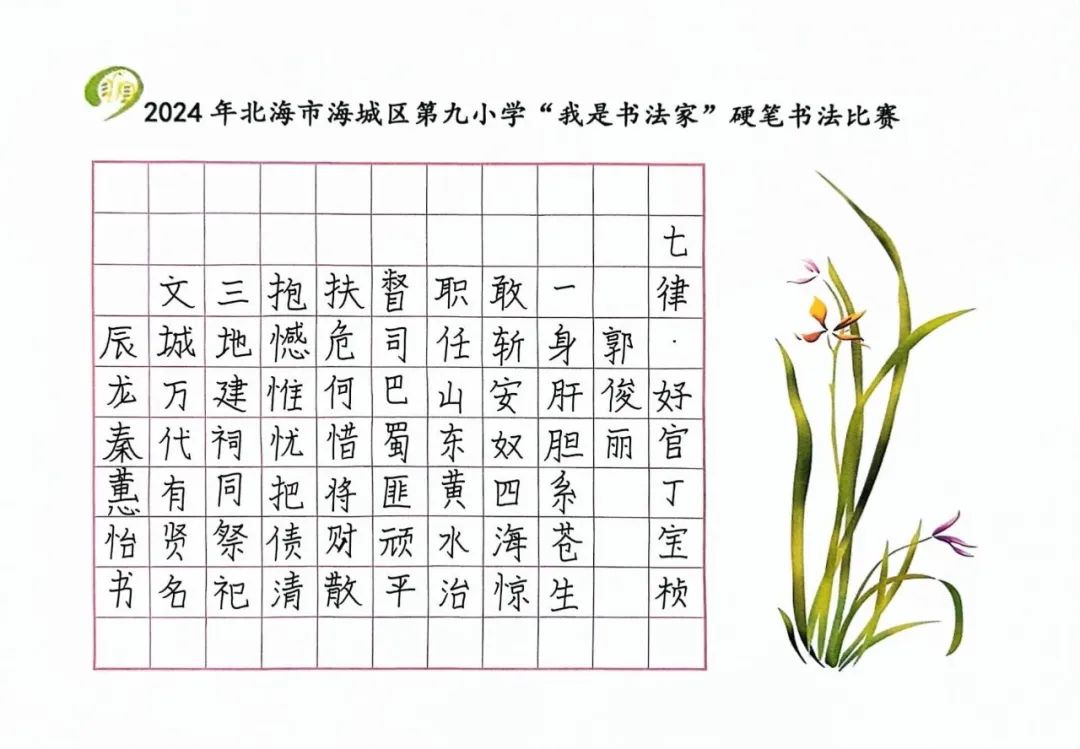 2024年北海市海城区第九小学“我是书法家”硬笔书法比赛
七律·好官丁宝桢
郭俊丽
一身肝胆系苍生
敢斩安奴四海惊
职任山东黄水治
督司巴蜀匪顽平
扶危何惜将财散
抱憾惟忧把债清
三地建祠同祭祀
文城万代有贤名
辰龙秦蕙怡书